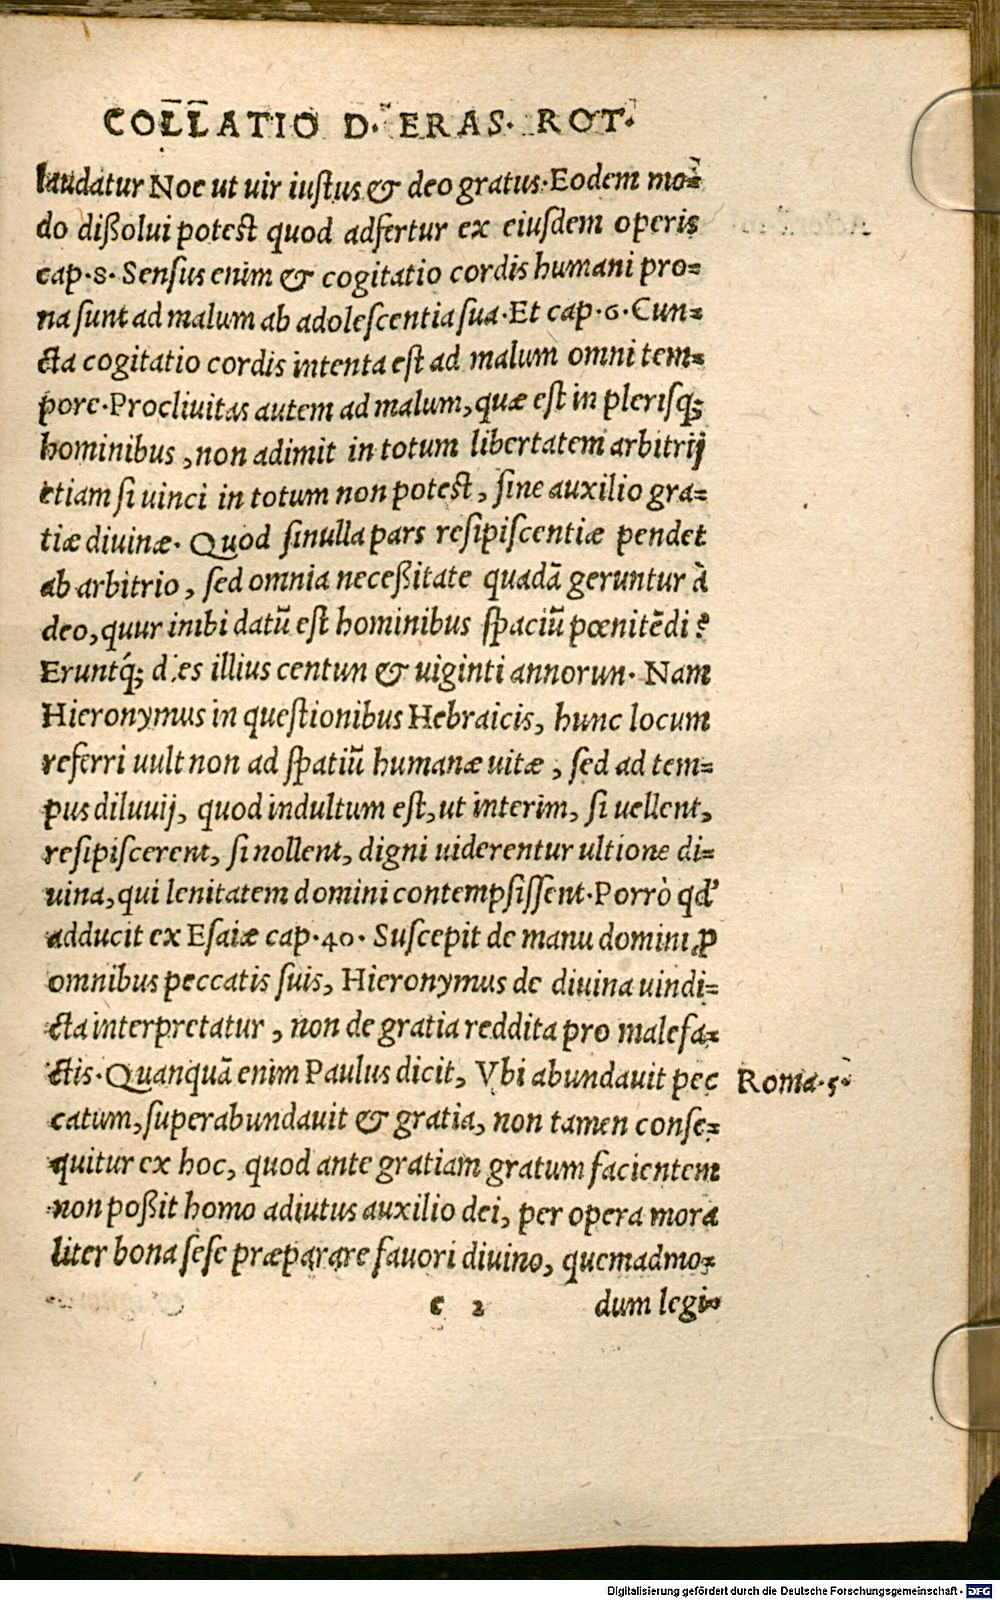 COL̅L̅ATIO D. ERAS. ROT.
laudatur Noe ut uir iustus & deo gratus. Eodem mo=
do dißolui potest quod adfertur ex eiusdem operis
cap. 8. Sensus enim & cogitatio cordis humani pro=
na sunt ad malum ab adolescentia sua. Et cap. 6. Cun=
cta cogitatio cordis intenta est ad malum omni tem=
pore. Procliuitas autem ad malum, quæ est in plerisq;
hominibus, non adimit in totum libertatem arbitrij
etiam si uinci in totum non potest, sine auxilio gra=
tiæ diuinæ. Quod si nulla pars resipiscentiæ pendet
ab arbitrio, sed omnia neceßitate quadã geruntur à
deo, quur inibi datũ est hominibus spaciũ pœnitẽdi?
Eruntq́; dies illius centun & uiginti annorun. Nam
Hieronymus in questionibus Hebraicis, hunc locum
referri uult non ad spatiũ humanæ uitæ, sed ad tem=
pus diluuij, quod indultum est, ut interim, si uellent,
resipiscerent, si nollent, digni uiderentur ultione di=
uina, qui lenitatem domini contempsissent. Porrò qđ
adducit ex Esaiæ cap. 40. Suscepit de manu domini ꝓ
omnibus peccatis suis, Hieronymus de diuina uindi=
cta interpretatur, non de gratia reddita pro malefa=
ctis. Quanquã enim Paulus dicit, Vbi abundauit pec
Roma. 5.
catum, superabundauit & gratia, non tamen conse=
quitur ex hoc, quod ante gratiam gratum facientem
non poßit homo adiutus auxilio dei, per opera mora
liter bona sese præparare fauori diuino, quemadmo=
c 2 dum legi=
Digitalisierung gefördert durch die Deutsche Forschungsgemeinschaft - DFG